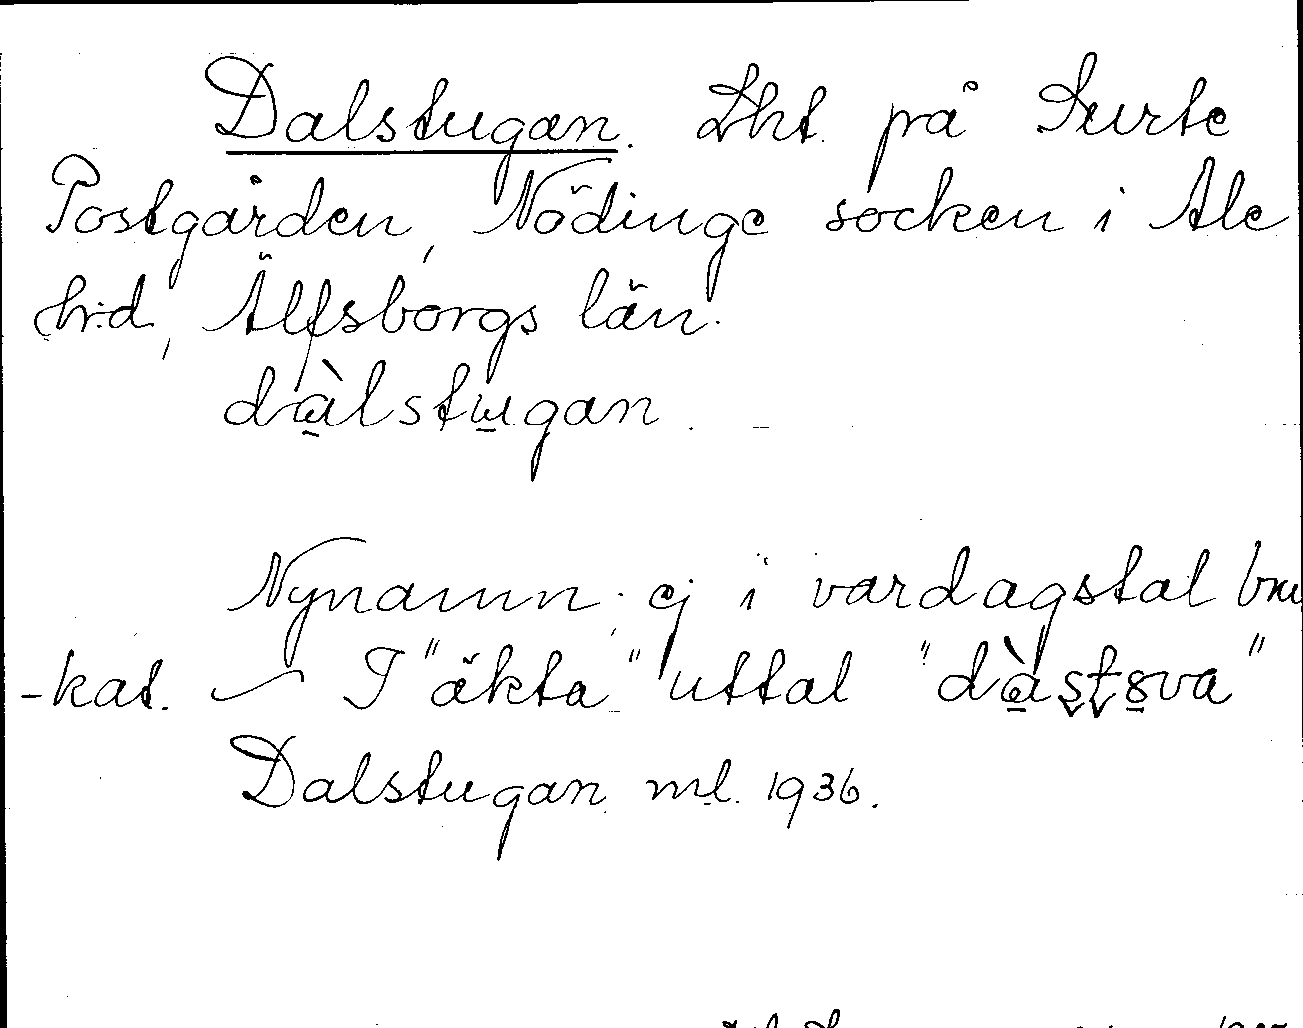 Dalstugan. Lht. på Surte
Postgården, Nödinge socken i Ale
h:d, Älfsborgs län.
dàlstugan.
Nynamn; ej i vardagstal bru
-kat. — I "äkta" uttal "dàstova"
Dalstugan ml. 1936.